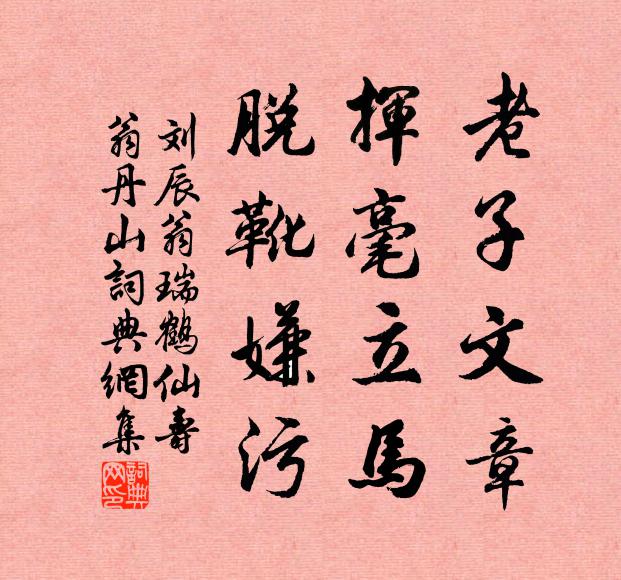 老子文章
揮毫立馬
脫靴嫌污
刘辰翁瑞鶴仙壽
翁丹山詞典網集
詞典网印